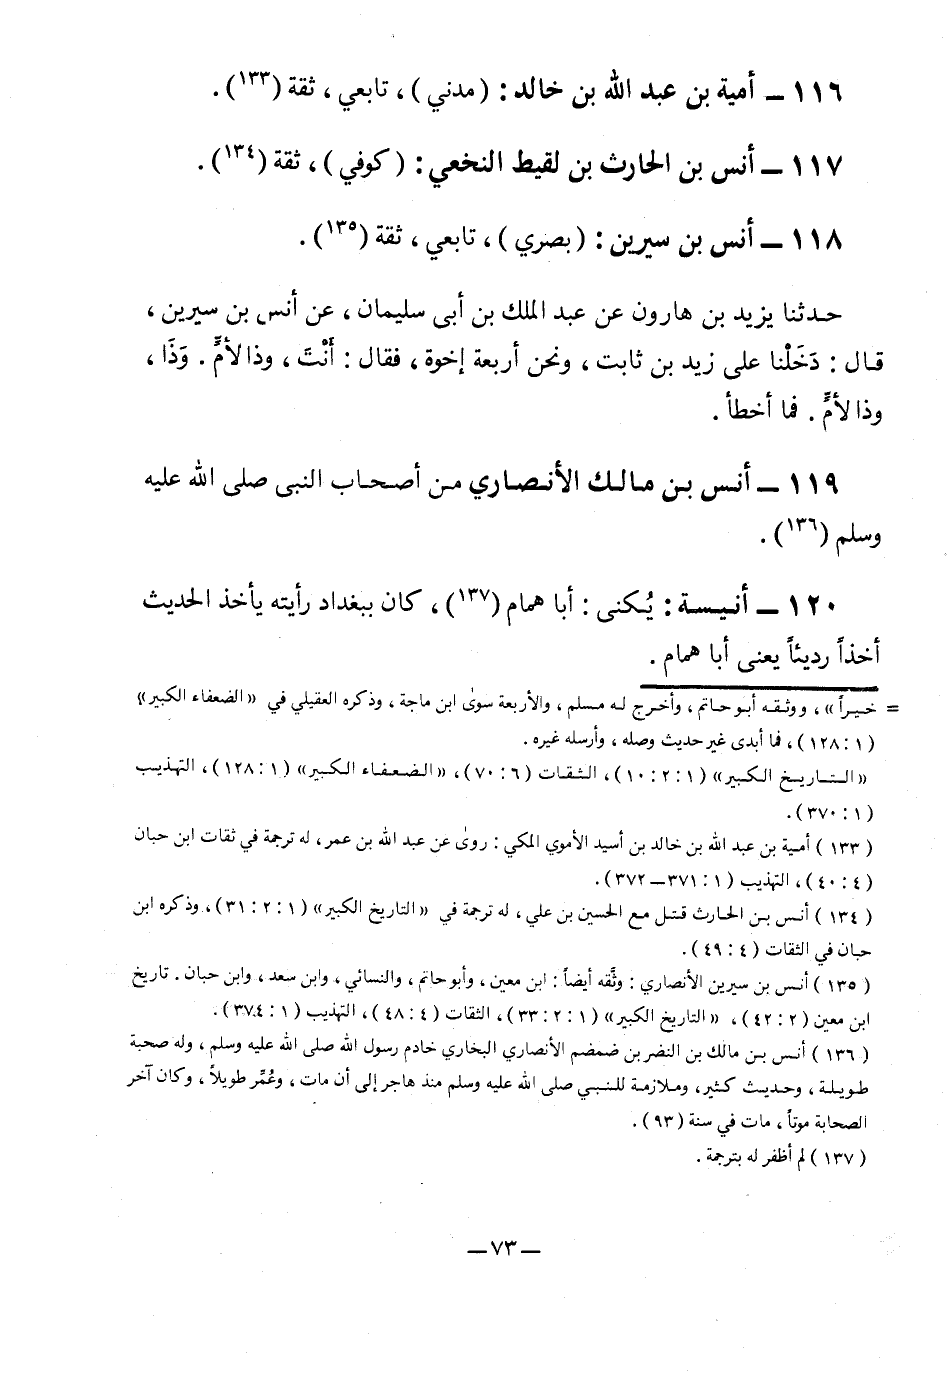 ١١٦ ــ أمية بن عبد الله بن خالد : ( مدني ) ، تابعي ، ثقة (١٣٣) .
١١٧ ــ أنس بن الحارث بن لقيط النخعي : ( كوفي ) ، ثقة (١٣٤) .
١١٨ ــ أنس بن سيرين : ( بصري ) ، تابعي ، ثقة (١٣٥) .
حدثنا يزيد بن هارون عن عبد الملك بن أبى سليمان ، عن أنس بن سيرين ،
قال : دَخَلْنا على زيد بن ثابت ، ونحن أربعة إخوة ، فقال : أَنْتَ ، وذا لأمٍّ . وَذَا ،
وذا لأمٍّ . فما أخطأ .
١١٩ ــ أنس بن مالك الأنصاري من أصحاب النبى صلى الله عليه
وسلم (١٣٦) .
١٢٠ ــ أنيسة : يُكنى : أبا همام (١٣٧) ، كان ببغداد رأيته يأخذ الحديث
أخذاً رديئاً يعنى أبا همام .
= خيراً » ، ووثقه أبو حاتم ، وأخرج له مسلم ، والأربعة سوىٰ ابن ماجة ، وذكره العقيلي في « الضعفاء الكبير »
( ١ : ١٢٨ ) ، فما أبدى غير حديث وصله ، وأرسله غيره .
« التاريخ الكبير » ( ١ : ٢ : ١٠ ) ، الثقات ( ٦ : ٧٠ ) ، « الضعفاء الكبير » ( ١ : ١٢٨ ) ، التهذيب
( ١ : ٣٧٠ ) .
( ١٣٣ ) أمية بن عبد الله بن خالد بن أسيد الأموي المكي : روىٰ عن عبد الله بن عمر ، له ترجمة في ثقات ابن حبان
( ٤ : ٤٠ ) ، التهذيب ( ١ : ٣٧١ــ ٣٧٢ ) .
( ١٣٤ ) أنس بن الحارث قتل مع الحسين بن علي ، له ترجمة في « التاريخ الكبير » ( ١ : ٢ : ٣١ ) ، وذكره ابن
حبان في الثقات ( ٤ : ٤٩ ) .
( ١٣٥ ) أنس بن سيرين الأنصاري : وثَّقه أيضاً : ابن معين ، وأبو حاتم ، والنسائي ، وابن سعد ، وابن حبان . تاريخ
ابن معين ( ٢ : ٤٢ ) ، « التاريخ الكبير » ( ١ : ٢ : ٣٣ ) ، الثقات ( ٤ : ٤٨ ) ، التهذيب ( ١ : ٣٧٤ ) .
( ١٣٦ ) أنس بن مالك بن النضر بن ضمضم الأنصاري البخاري خادم رسول الله صلى الله عليه وسلم ، وله صحبة
طويلة ، وحديث كثير ، وملازمة للنبي صلى الله عليه وسلم منذ هاجر إلى أن مات ، وعُمِّر طويلاً ، وكان آخر
الصحابة موتاً ، مات في سنة ( ٩٣ ) .
( ١٣٧ ) لم أظفر له بترجمة .
ــ ٧٣ ــ